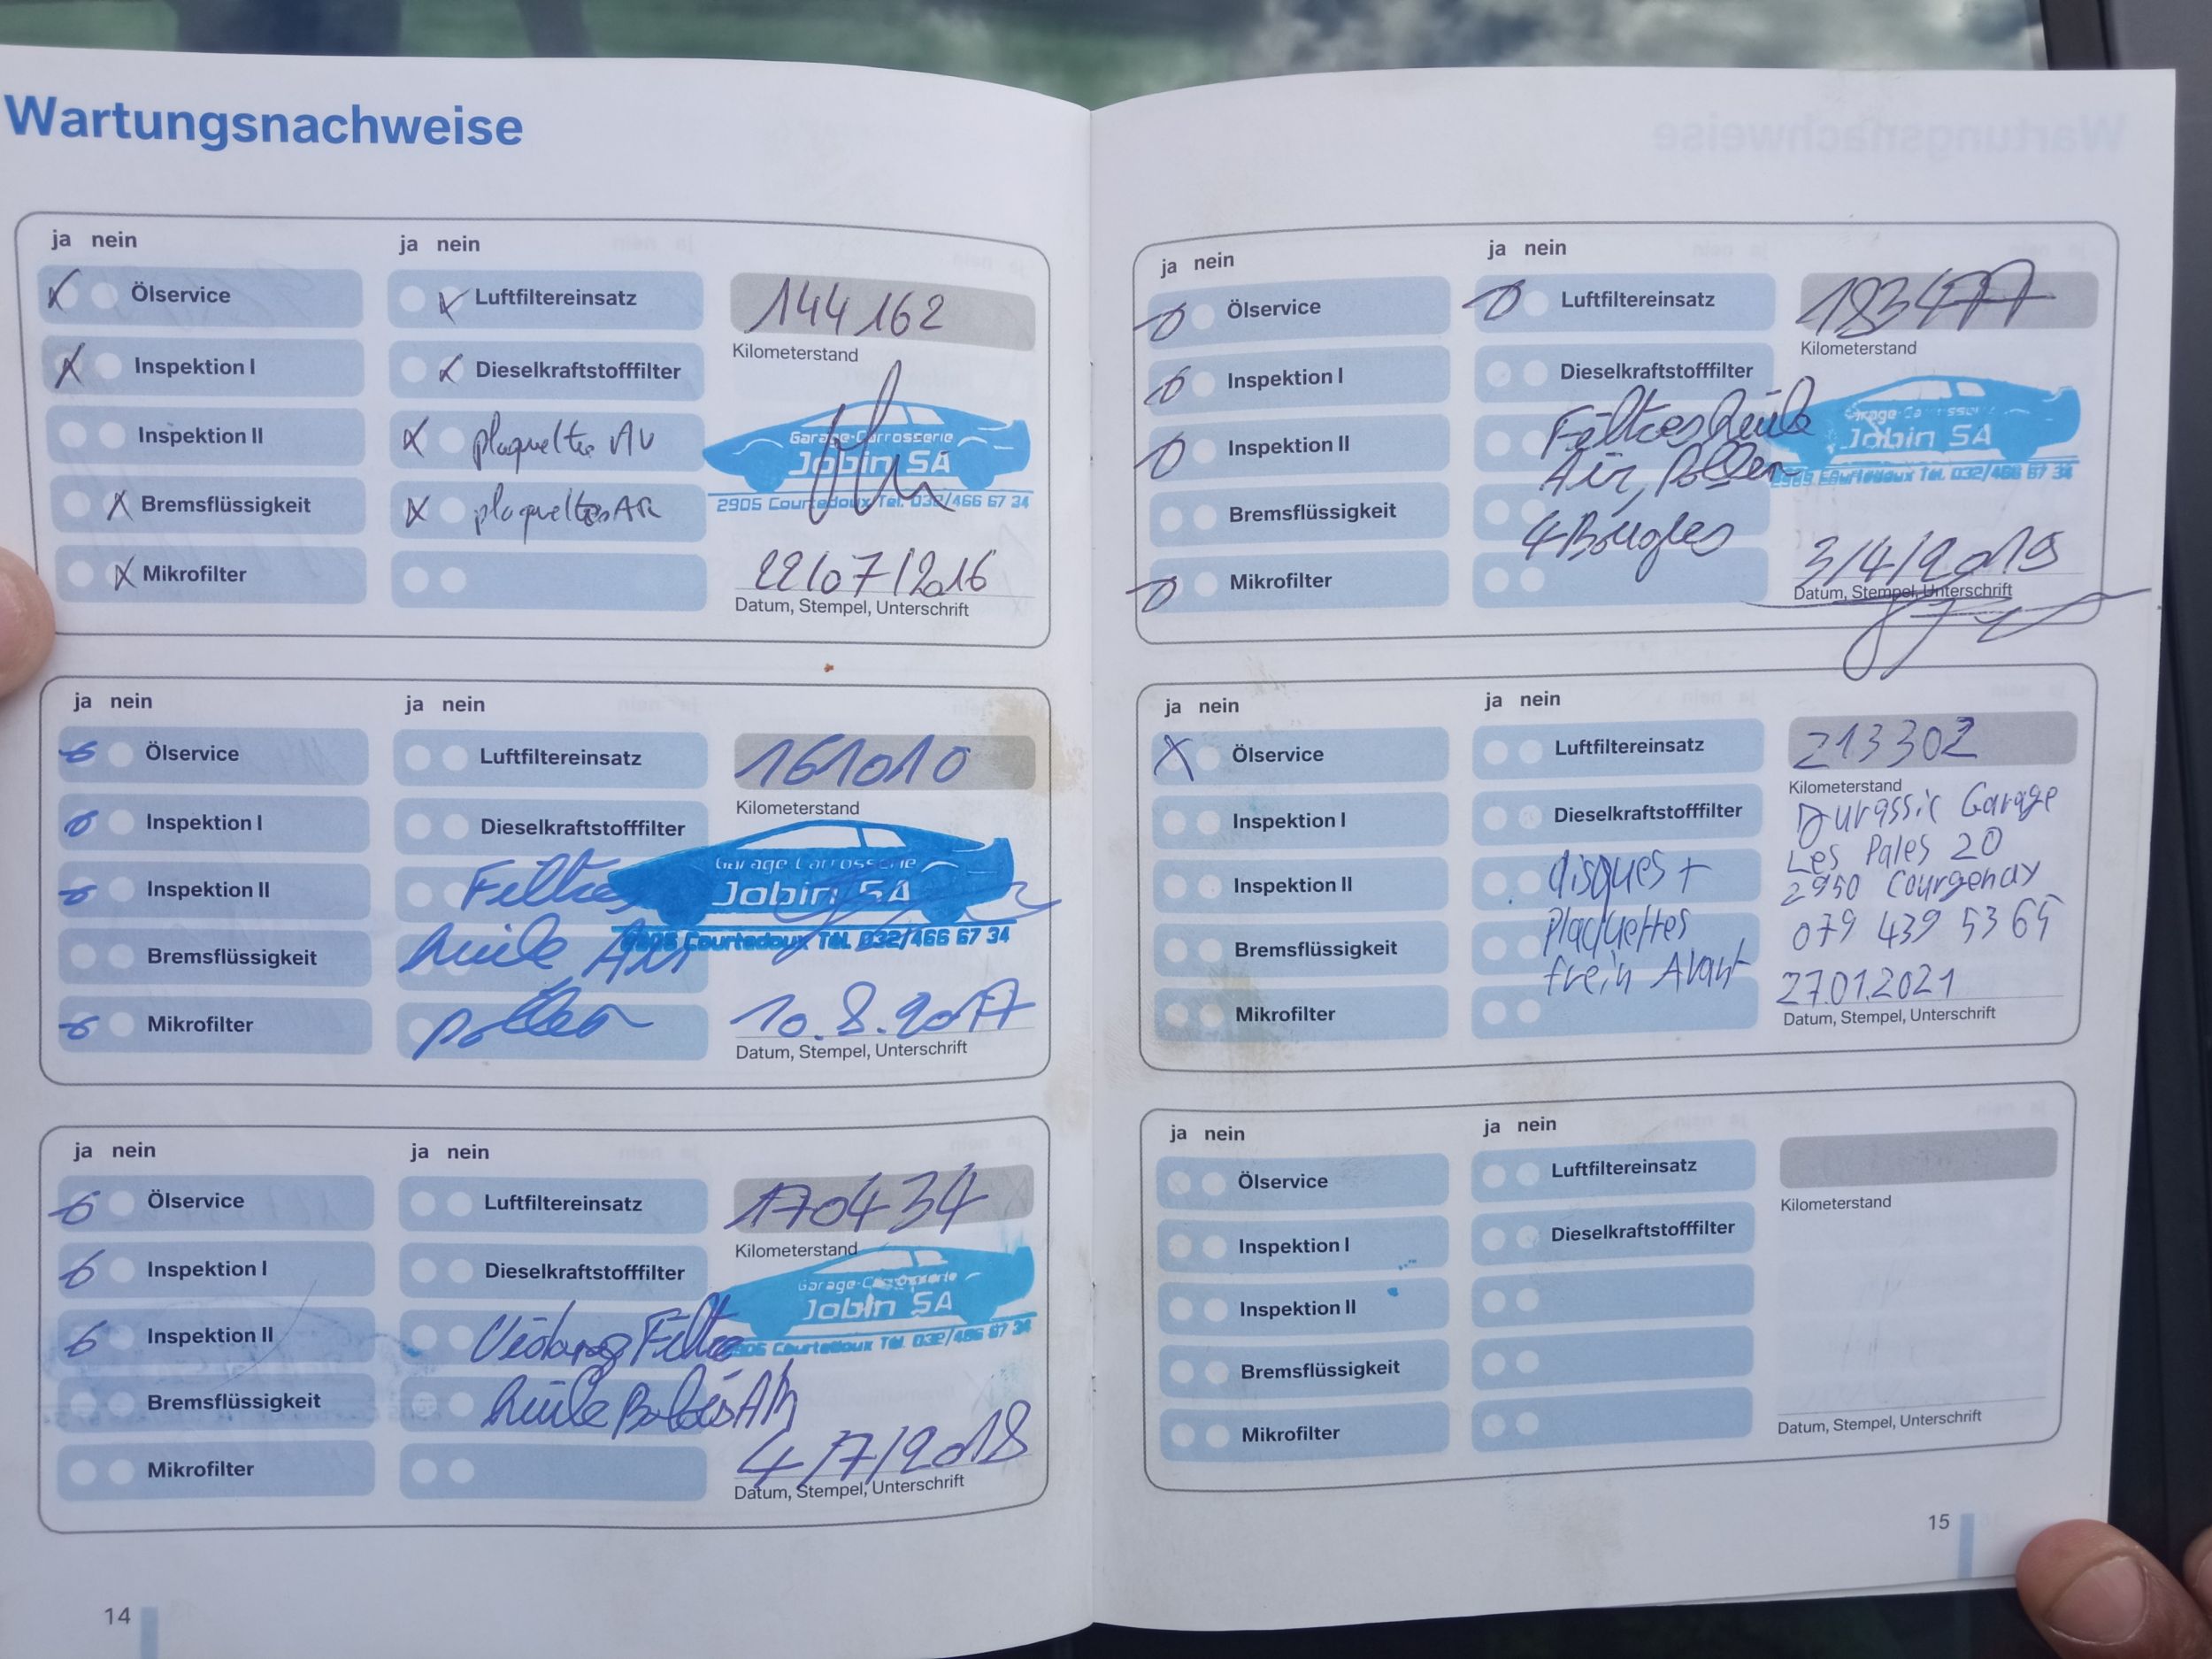 Wartungsnachweise
ja nein
ja nein
Ölservice
Luftfiltereinsatz
144162
Kilometerstand
Inspektion I
Dieselkraftstofffilter
Inspektion II
plaquettes AV
Garage-Carrosserie
Jobin SA
2905 Courtedoux Tél. 032/466 67 34
Bremsflüssigkeit
plaquettes AR
Mikrofilter
22/07/2016
Datum, Stempel, Unterschrift
ja nein
ja nein
Ölservice
Luftfiltereinsatz
161010
Kilometerstand
Inspektion I
Dieselkraftstofffilter
Inspektion II
Filtres
Garage Carrosserie
Jobin SA
2905 Courtedoux Tél. 032/466 67 34
Bremsflüssigkeit
huile Air
Mikrofilter
pollen
10.8.2017
Datum, Stempel, Unterschrift
ja nein
ja nein
Ölservice
Luftfiltereinsatz
170434
Kilometerstand
Inspektion I
Dieselkraftstofffilter
Garage-Carrosserie
Jobin SA
2905 Courtedoux Tél. 032/466 67 34
Inspektion II
Vidange Filtre
Bremsflüssigkeit
huile
Mikrofilter
4/7/2018
Datum, Stempel, Unterschrift
14
ja nein
ja nein
Ölservice
Luftfiltereinsatz
183477
Kilometerstand
Inspektion I
Dieselkraftstofffilter
Garage-Carrosserie
Jobin SA
2905 Courtedoux Tél. 032/466 67 34
Inspektion II
Filtres huile
Air, Pollen
Bremsflüssigkeit
4 Bougies
Mikrofilter
3/4/2019
Datum, Stempel, Unterschrift
ja nein
ja nein
Ölservice
Luftfiltereinsatz
213302
Kilometerstand
Inspektion I
Dieselkraftstofffilter
Durassic Garage
Les Pales 20
2950 Courgenay
079 439 53 65
Inspektion II
disques +
Bremsflüssigkeit
Plaquettes
frein Avant
Mikrofilter
27.01.2021
Datum, Stempel, Unterschrift
ja nein
ja nein
Ölservice
Luftfiltereinsatz
Kilometerstand
Inspektion I
Dieselkraftstofffilter
Inspektion II
Bremsflüssigkeit
Mikrofilter
Datum, Stempel, Unterschrift
15